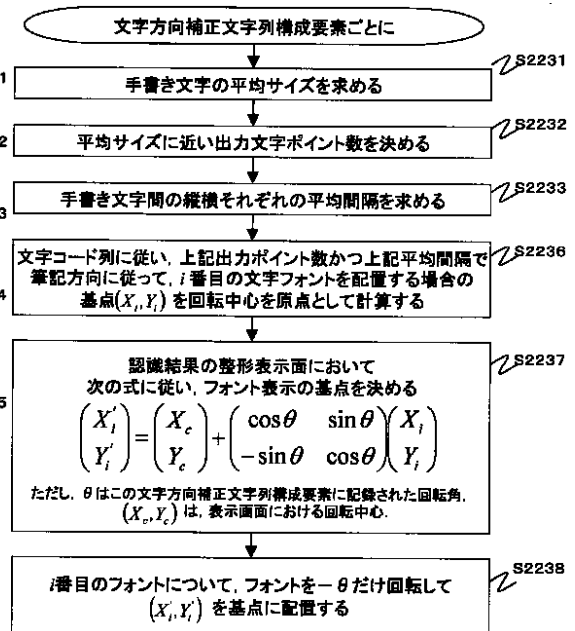 文字方向補正文字列構成要素ごとに
S2231
1
手書き文字の平均サイズを求める
S2232
2
平均サイズに近い出力文字ポイント数を決める
S2233
3
手書き文字間の縦横それぞれの平均間隔を求める
S2236
4
文字コード列に従い，上記出力ポイント数かつ上記平均間隔で
筆記方向に従って，i 番目の文字フォントを配置する場合の
基点(X_i,Y_i) を回転中心を原点として計算する
S2237
5
認識結果の整形表示面において
次の式に従い，フォント表示の基点を決める
(X_i' Y_i') = (X_c Y_c) + (cosθ sinθ −sinθ cosθ)(X_i Y_i)
ただし，θはこの文字方向補正文字列構成要素に記録された回転角，
(X_c,Y_c) は，表示画面における回転中心．
S2238
i番目のフォントについて，フォントを－θだけ回転して
(X_i',Y_i') を基点に配置する